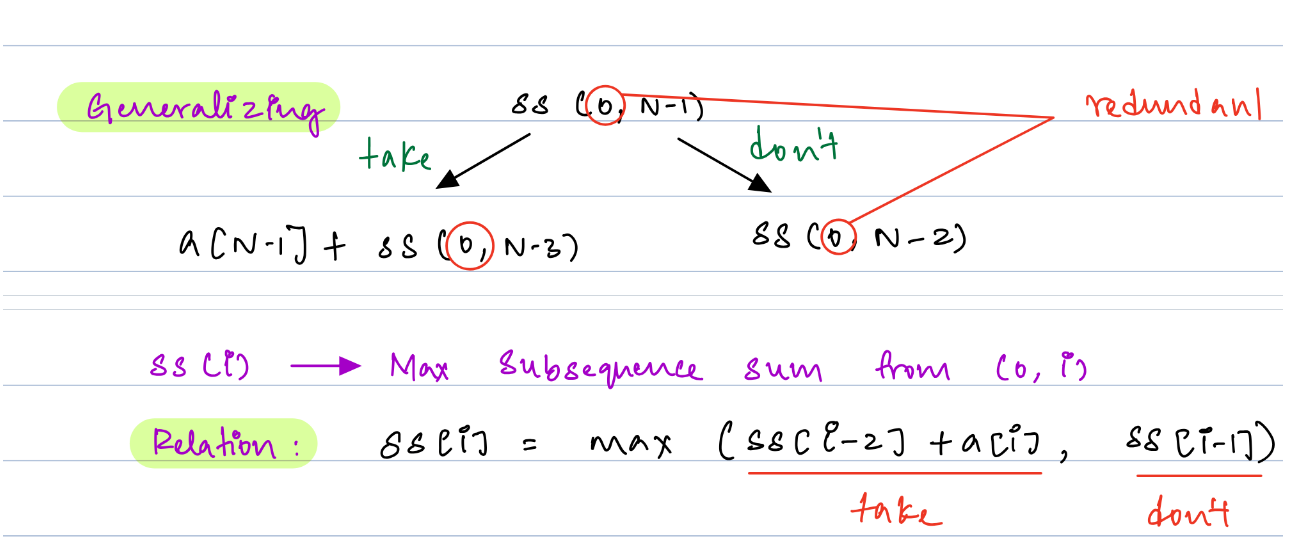 Generalizing ss (0, N-1) redundant
take don't
a[N-1] + ss (0, N-3) ss (0, N-2)
ss(i) → Max subsequence sum from (0, i)
Relation: ss[i] = max (ss[i-2] + a[i], ss[i-1])
take don't